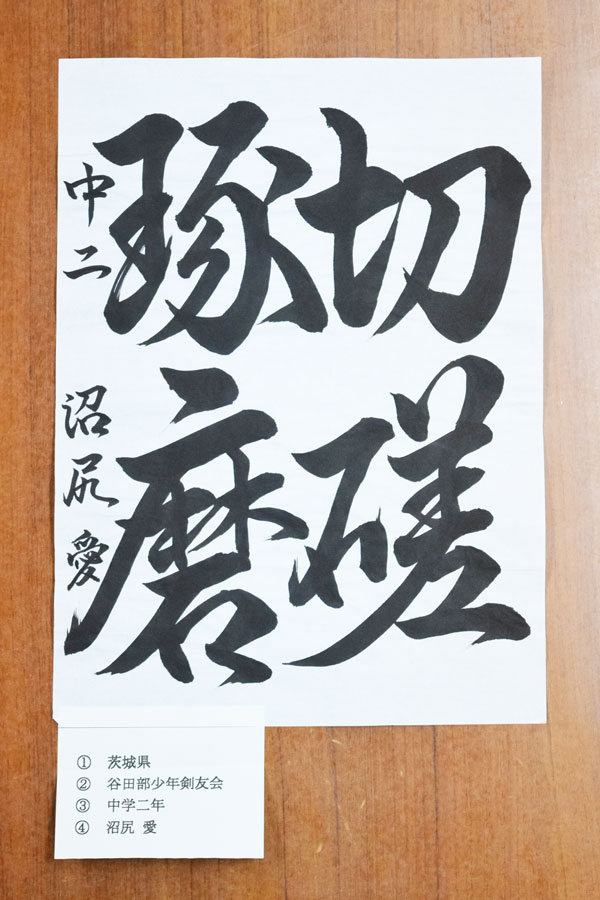 切磋
琢磨
中二 沼尻 愛
① 茨城県
② 谷田部少年剣友会
③ 中学二年
④ 沼尻 愛